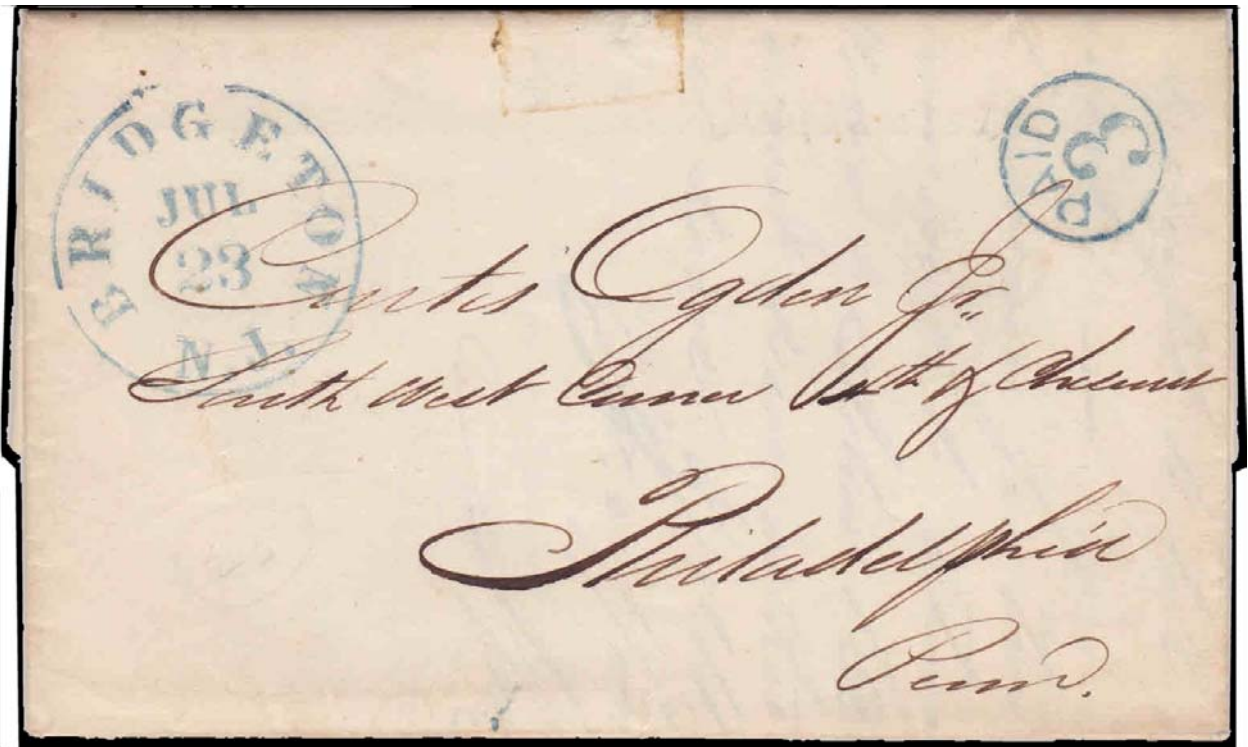 BRIDGETON
JUL
23
N J.
PAID
3
Curtis Ogden Jr.
South West Corner of Chesnut
Philadelphia
Penn.